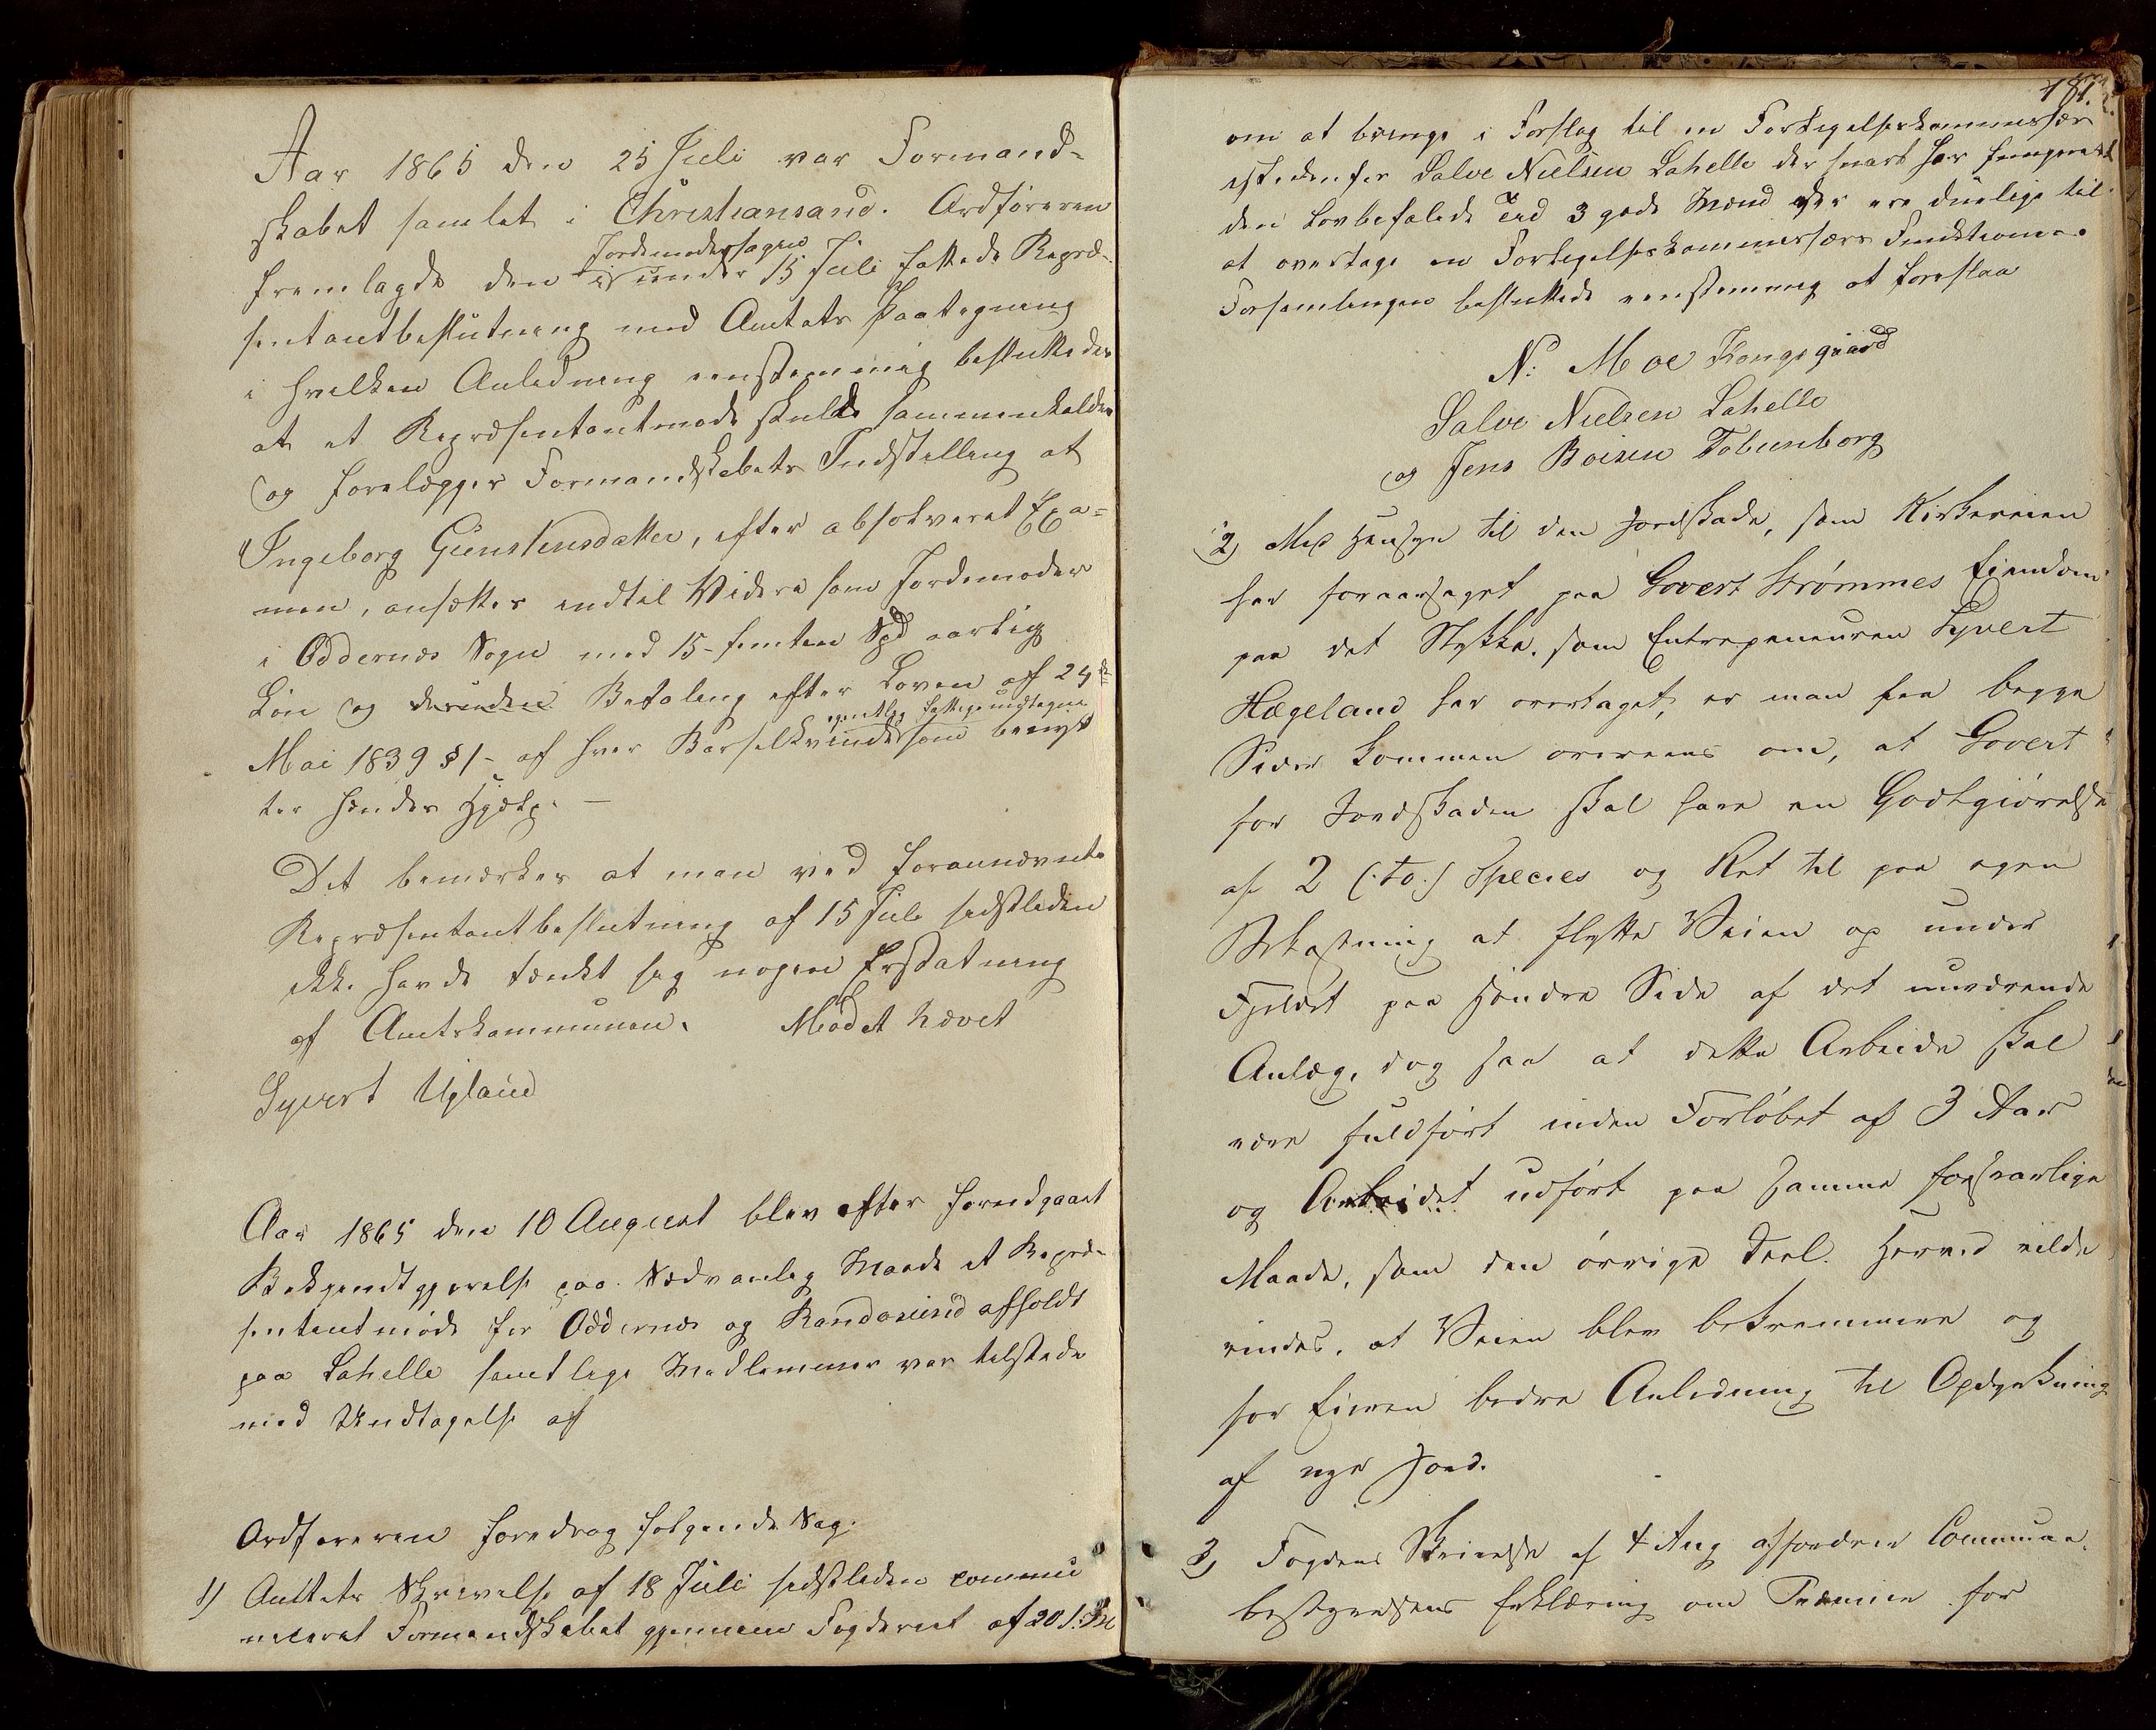 Aar 1865 den 25 Juli var Formand-
skabet samlet i Christiansand. Ordføreren
Jordemodersagen
fremlagde den i under 15 Juli fattede Repræ-
sentantbeslutning med Amtets Paategning
i hvilken Anledning eenstemmig besluttedes
at et Repræsentantmøde skulde sammenkaldes
og forelægges Formandskabets Indstilling at
Ingeborg Gunstensdatter, efter absolveret Exa-
men, ansættes indtil Videre som Jordemoder
i Oddernes Sogn med 15- femten Spd aarlig
Løn og desuden Betaling efter Loven af 24de
egentlig fattige undtagne
Mai 1839 § 1- af hver Barselkvinde som benyt
ter hendes Hjælp. —
Det bemærkes at man ved forannævnte
Repræsentantbeslutning af 15 Juli sidstleden
ikke havde tænkt sig nogen Erstatning
af Amtskommunen. Mødet hævet
Syvert Ugland
Aar 1865 den 10 August blev efter foregaaet
Bekjendtgjørelse paa Sædvanlig Maade et Repræ-
sentantmøde for Oddernes og Randøsund afholdt
paa Lahelle samtlige Medlemmer var tilstede
med Undtagelse af
Ordføreren foredrog følgende Sag.
1) Amtets Skrivelse af 18 Juli sidstleden commu
niceret Formandskabet gjennem Fogderiet af 20 s. M
181.
om at bringe i Forslag til en Forligelseskommissær
istedenfor Salve Nielsen Lahelle der snart har fungeret
den Lovbefalede Tid 3 gode Mænd der ere duelige til
at overtage en Forligelseskommissærs Funktioner.
Forsamlingen besluttede eenstemmig at foreslaa
N: Moe Kongsgaard
Salve Nielsen Lahelle
og Jens Boisen Tobienborg
2) Med Hensyn til den Jordskade, som Kirkeveien
har foraarsaget paa Govert Strømmes Eiendom
paa det Stykke, som Entrepeneuren Syvert
Hægeland har overtaget, er man fra begge
Sider kommen overeens om, at Govert
for Jordskaden skal have en Godtgiørelse
af 2 (:to:) Species og Ret til paa egen
Bekostning at flytte Veien op under
Fjeldet paa Høndre Side af det nuværende
Anlæg, dog saa at dette Arbeide skal
være fuldført inden Forløbet af 3 Aar
og Arbeidet udført paa samme forsvarlige
Maade, som den øvrige Deel. Herved vilde
vindes, at Veien blev bekvemmere og
for Eieren bedre Anledning til Opdyrkning
af nye Jord.
3) Fogdens Skrivelse af 4 Aug affordrer Commune-
bestyrelsens Erklæring om Præmie for